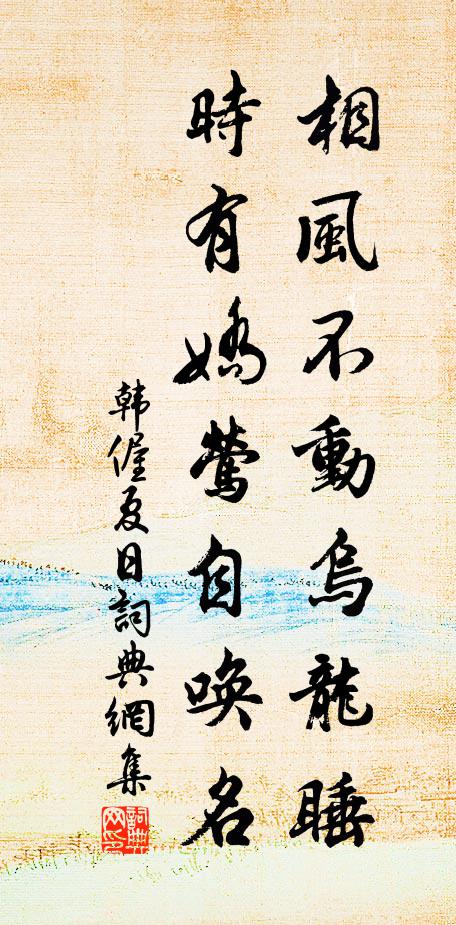 相風不動烏龍睡
時有嬌鶯自喚名
韩偓夏日詞典網集
詞典網印